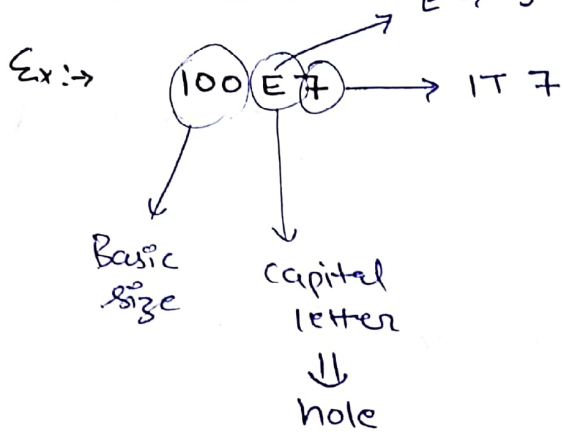 Ex:→ 100 E 7 → IT 7
Basic
size
capital
letter
⇓
hole